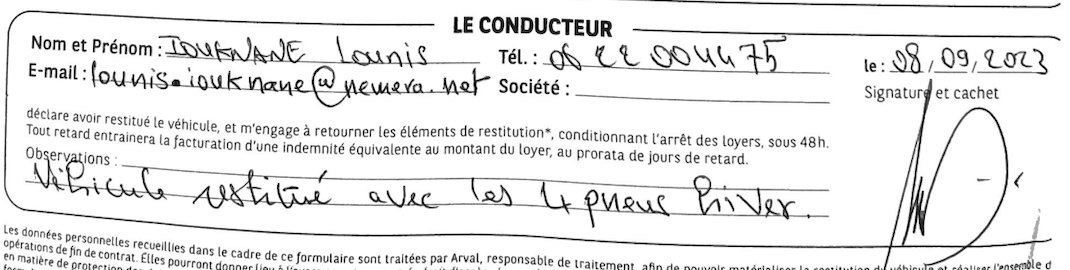 LE CONDUCTEUR
Nom et Prénom : IOUKNANE Lounis Tél. : 06 22 004475 le : 08,09,2023
E-mail : lounis.iouknane@nemera.net Société : Signature et cachet
déclare avoir restitué le véhicule, et m'engage à retourner les éléments de restitution*, conditionnant l'arrêt des loyers, sous 48h.
Tout retard entrainera la facturation d'une indemnité équivalente au montant du loyer, au prorata de jours de retard.
Observations :
Véhicule restitué avec les 4 pneus hiver.
Les données personnelles recueillies dans le cadre de ce formulaire sont traitées par Arval, responsable de traitement, afin de pouvoir matérialiser la restitution du véhicule et réaliser l'ensemble d
opérations de fin de contrat. Elles pourront donner lieu à
en matière de protection